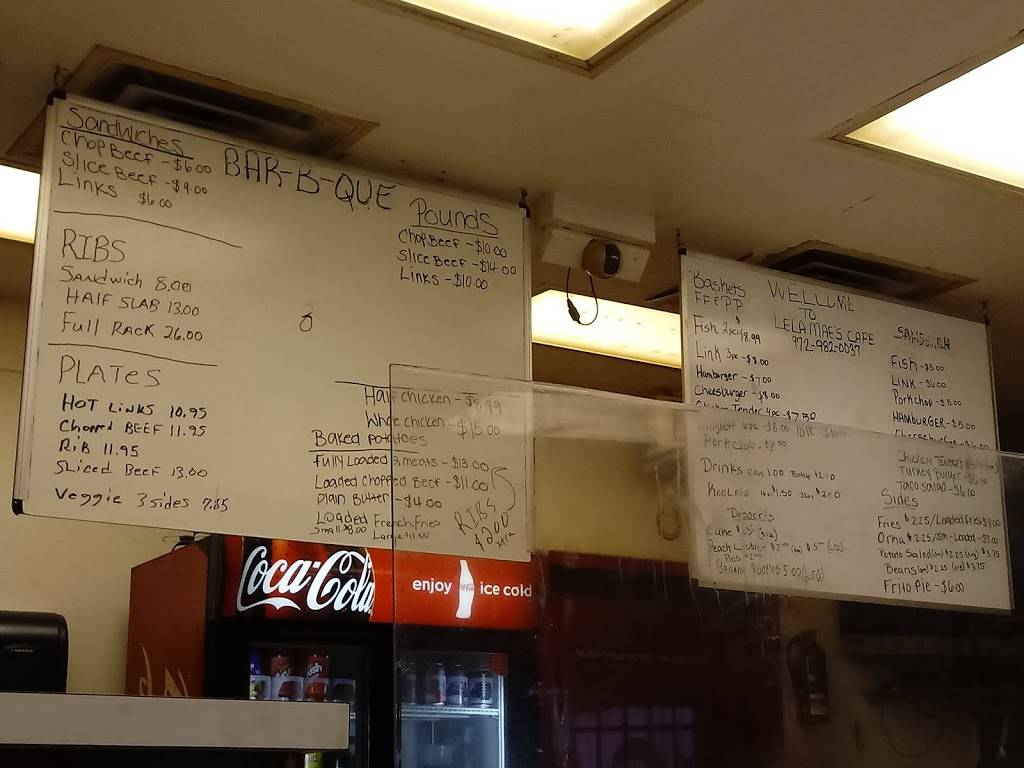 Sandwiches
Chop Beef - $6.00
Slice Beef - $9.00
Links $6.00
BAR-B-QUE
Pounds
Chop Beef - $10.00
Slice Beef - $14.00
Links - $10.00
RIBS
Sandwich 8.00
HALF SLAB 13.00
Full RACK 26.00
PLATES
HOT LINKS 10.95
Chopped BEEF 11.95
RiB 11.95
Sliced Beef 13.00
Veggie 3 sides 7.85
Half chicken - $8.99
Whole chicken - $15.00
Baked potatoes
Fully Loaded 3 meats - $13.00
Loaded Chopped Beef - $11.00
Plain Butter - $4.00
Loaded French Fries
Small $8.00 Large 11.00
RIBS
ADD
Baskets
FF & P.P
Fish 2pc $8.99
Link 3pc - $8.00
Hamburger - $7.00
Cheesburger - $8.00
Chicken Tender 4pc - $7.50
Porkchop - $8.00
Drinks can 1.00 Bottle $2.00
KoolAid 16oz $1.50 32oz $2.00
Desserts
WELLCOME
TO
LELA MAE'S CAFE
972-982-0037
Fish - $5.00
LINK - $6.00
Porkchop - $5.00
HAMBURGER - $5.00
Cheeseburger - $6.00
Chicken Tenders
Turkey Burger - $6.00
Taco salad - $6.00
Sides
Fries $2.25/Loaded Fries $11.00
Okra $2.25/Sm - Loaded - $8.00
Potato Salad (sm) $2.25 (Lg) $3.75
Beans (sm) $2.25 (Lg) $3.75
Frito Pie - $6.00
Coca-Cola
enjoy ice cold